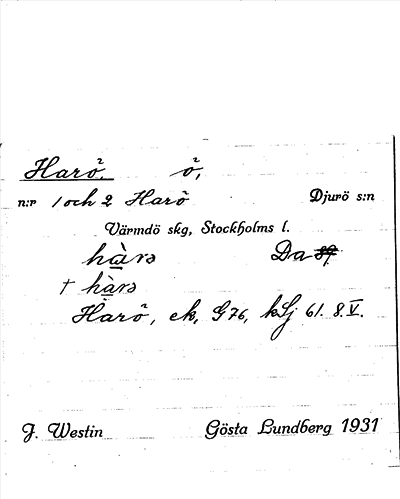 Harö, ö,
n:r 1 och 2 Harö Djurö s:n
Värmdö skg, Stockholms l.
hàrə Da
† hàrə
Harö, ek, G76, kSj 61. 8.V.
J. Westin Gösta Lundberg 1931